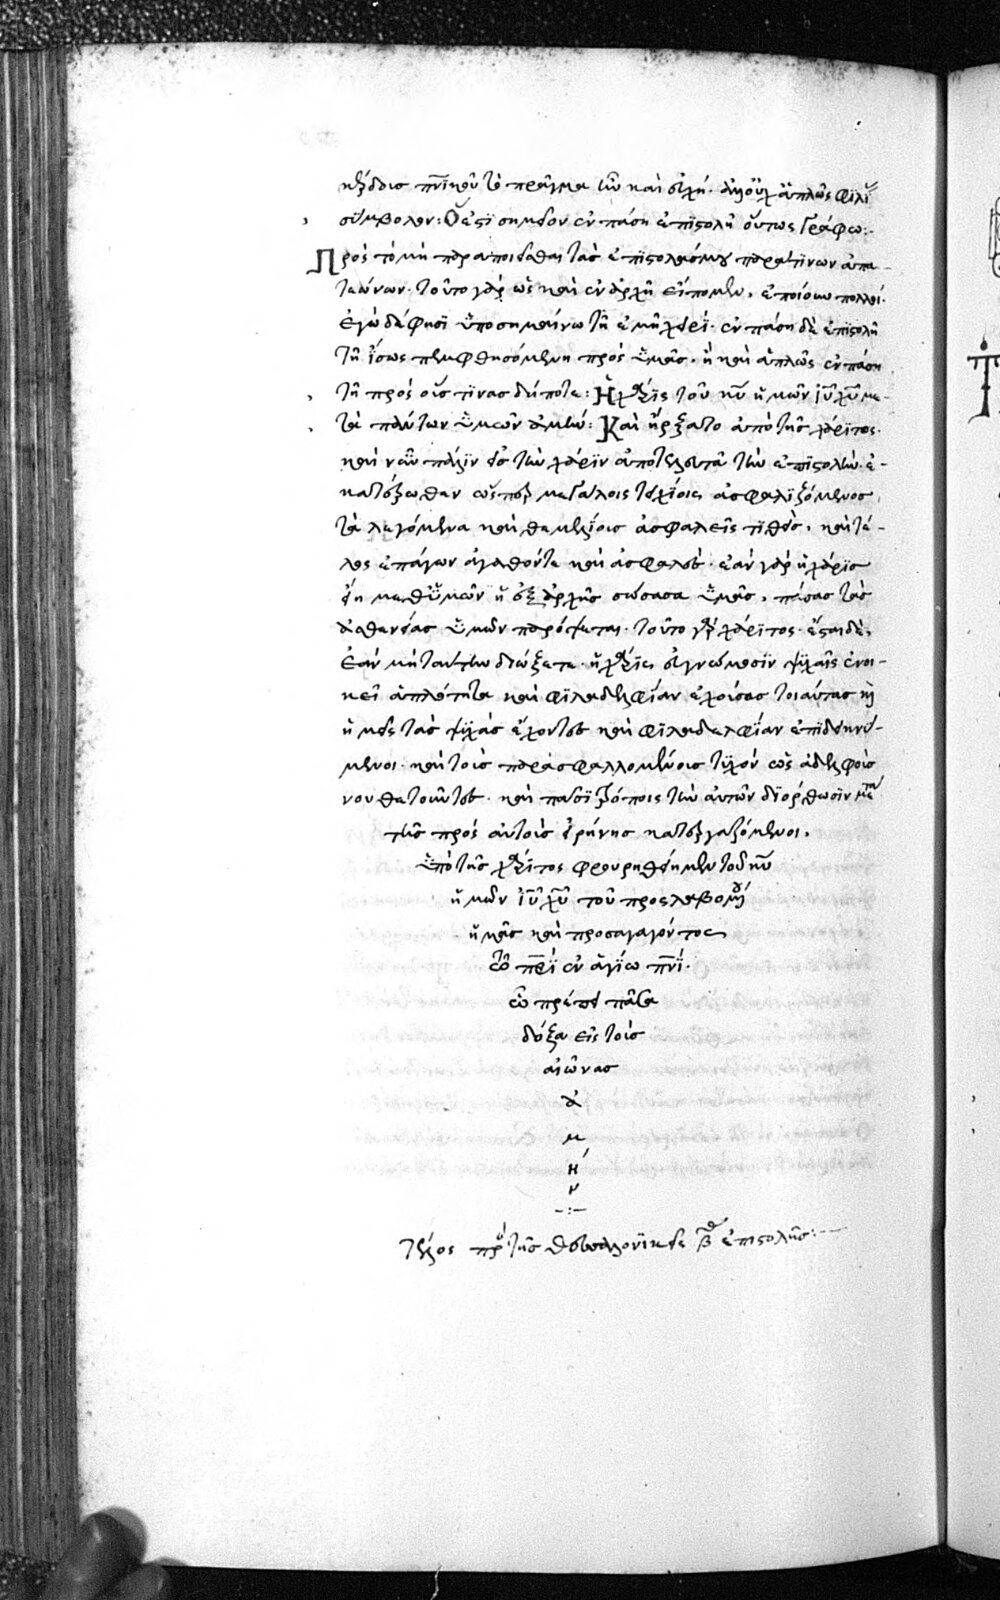 κέρδος πνικοῦ τὸ πρᾶγμα ὂν καὶ εὐχή. ἀλλ' οὐχ ἁπλῶς φιλί
σύμβολον: Ὅ ἐστι σημεῖον ἐν πάσῃ ἐπιστολῇ οὕτως γράφω:
Πρὸς τὸ μὴ παραποιεῖσθαι τὰς ἐπιστολάς μου παρά τινων ἀπα
τεώνων. τοῦτο γὰρ ὡς καὶ ἐν ἀρχῇ εἴπομεν, ἐποίουν πολλοί.
ἐγὼ δέ φησι ὑποσημαίνω τῇ ἐμῇ χειρί. ἐν πάσῃ δὲ ἐπιστολῇ
τῇ ἴσως πεμφθησομένῃ πρὸς ὑμᾶς. ἢ καὶ ἁπλῶς ἐν πάσῃ
τῇ πρὸς οὕς τινας δήποτε: Ἡ χάρις τοῦ κυ ἡμῶν ιυ χυ με
τὰ πάντων ὑμῶν ἀμήν: Καὶ ἤρξατο ἀπὸ τῆς χάριτος.
καὶ νῦν πάλιν εἰς τὴν χάριν ἀποτελευτᾷ τὴν ἐπιστολήν. ἑ
κατέρωθεν ὥσπερ μεγάλοις τείχεσιν ἀσφαλιζόμενος
τὰ λεγόμενα καὶ θεμελίους ἀσφαλεῖς τιθεὶς, καὶ τέ
λος ἐπάγων ἀγαθόν τε καὶ ἀσφαλές. ἐὰν γὰρ ἡ χάρις
ᾖ μεθ' ὑμῶν ἡ ἐξ ἀρχῆς σώσασα ὑμᾶς, πάσας τὰς
ἀσθενείας ὑμῶν
ἐὰν μὴ ταύτην διώξετε. ἡ χάρις εὐγνώμοσιν ψυχαῖς ἐνοι
κεῖ ἁπλότητα καὶ φιλαδελφίαν ἐχούσας τοιαύτας καὶ
ἡμεῖς τὰς ψυχὰς ἔχοντες καὶ φιλαδελφίαν ἐπιδεικνύ
μενοι. καὶ τοὺς παρασφαλλομένους τυχὸν ὡς ἀδελφοὺς
νουθετοῦντες. καὶ πᾶσι τρόποις τὴν αὐτῶν διόρθωσιν μετὰ
τῆς πρὸς αὐτοὺς εἰρήνης κατεργαζόμενοι,
ὑπὸ τῆς χάριτος φρουρηθείημεν τοῦ κυ
ἡμῶν ιυ χυ τοῦ προσλαβομένου
ἡμᾶς καὶ προσαγαγόντος
τῷ πρι ἐν ἁγίω πνι.
ὧ πρέπει πᾶσα
δόξα εἰς τοὺς
αἰῶνας
ἀ
μ
ή
ν
Τέλος πρὸς τῆς Θεσσαλονικεῖς β ἐπιστολῆς: